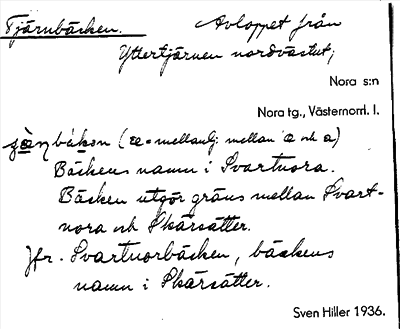 Tjärnbäcken. Avloppet från
Yttertjärnen nordvästut;
Nora s:n
Nora tg., Västernorrl. l.
bäkən (æ = mellanlj. mellan a och a)
Bäckens namn i Svartnora.
Bäcken utgör gräns mellan Svart-
nora och Skärsätter.
Jfr. Svartnorbäcken, bäckens
namn i Skärsätter.
Sven Hiller 1936.